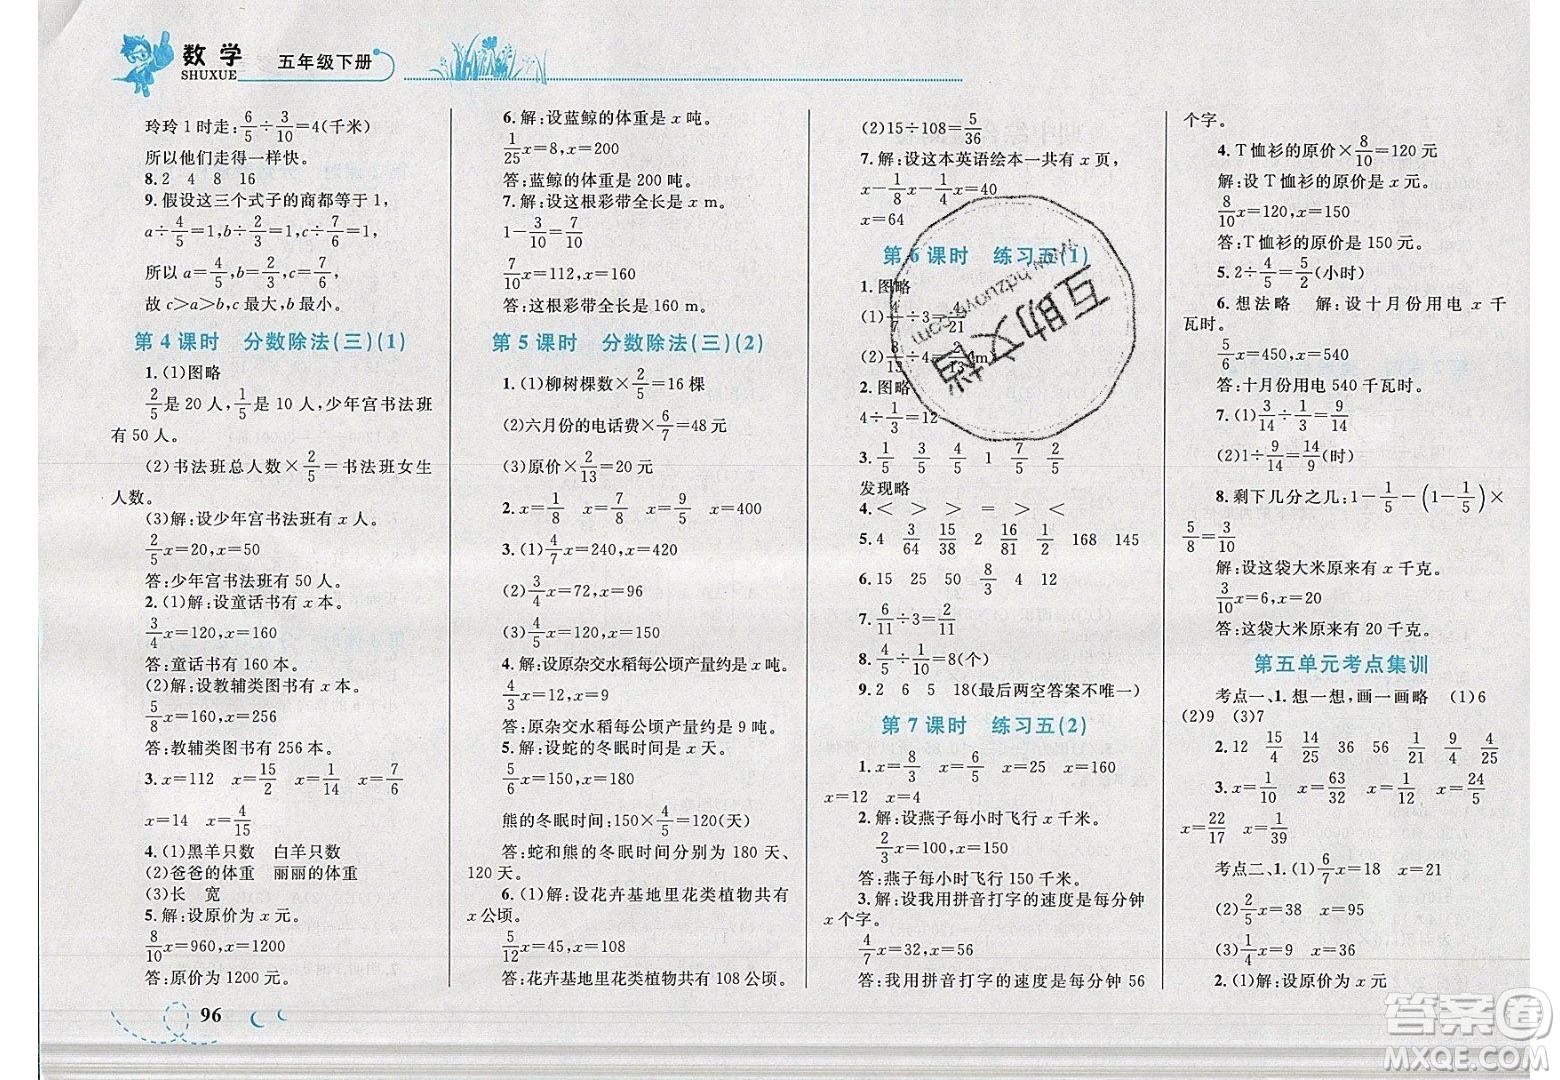 数学
SHUXUE
五年级下册
玲玲1时走:6/5÷3/10=4(千米)
所以他们走得一样快。
8.2 4 8 16
9.假设这三个式子的商都等于1,
a÷4/5=1,b÷2/3=1,c÷7/6=1,
所以a=4/5,b=2/3,c=7/6,
故c>a>b,c最大,b最小。
第4课时 分数除法(三)(1)
1.(1)图略
2/5是20人,1/5是10人,少年宫书法班
有50人。
(2)书法班总人数×2/5=书法班女生
人数。
(3)解:设少年宫书法班有x人。
2/5x=20,x=50
答:少年宫书法班有50人。
2.(1)解:设童话书有x本。
3/4x=120,x=160
答:童话书有160本。
(2)解:设教辅类图书有x本。
5/8x=160,x=256
答:教辅类图书有256本。
3.x=112 x=15/2 x=1/14 x=7/6
x=14 x=4/15
4.(1)黑羊只数 白羊只数
(2)爸爸的体重 丽丽的体重
(3)长 宽
5.解:设原价为x元。
8/10x=960,x=1200
答:原价为1200元。
96
6.解:设蓝鲸的体重是x吨。
1/25x=8,x=200
答:蓝鲸的体重是200吨。
7.解:设这根彩带全长是x m。
1-3/10=7/10
7/10x=112,x=160
答:这根彩带全长是160 m。
第5课时 分数除法(三)(2)
1.(1)柳树棵数×2/5=16棵
(2)六月份的电话费×6/7=48元
(3)原价×2/13=20元
2.x=1/8 x=4/7 x=9/5 x=400
3.(1)4/7x=240,x=420
(2)3/4x=72,x=96
(3)4/5x=120,x=150
4.解:设原杂交水稻每公顷产量约是x吨。
4/3x=12,x=9
答:原杂交水稻每公顷产量约是9吨。
5.解:设蛇的冬眠时间是x天。
5/6x=150,x=180
熊的冬眠时间:150×4/5=120(天)
答:蛇和熊的冬眠时间分别为180天、
120天。
6.(1)解:设花卉基地里花类植物共有
x公顷。
5/12x=45,x=108
答:花卉基地里花类植物共有108公顷。
(2)15÷108=5/36
7.解:设这本英语绘本一共有x页,
x-1/8x-1/4x=40
x=64
第6课时 练习五(1)
1.图略
(1)4/7÷3=4/21
(2)8/13÷4=2/13(m)
2.图略
4÷1/3=12
3.1/5 4/5 4/5 1 1/5 4/5
发现略
4.< > > = > <
5.4 3/64 15/38 2 16/81 1/2 168 145
6.15 25 50 8/3 4 12
7.6/11÷3=2/11
8.4/5÷1/10=8(个)
9.2 6 5 18(最后两空答案不唯一)
第7课时 练习五(2)
1.x=8/3 x=6/5 x=25 x=160
x=12 x=4
2.解:设燕子每小时飞行x千米。
2/3x=100,x=150
答:燕子每小时飞行150千米。
3.解:设我用拼音打字的速度是每分钟
x个字。
4/7x=32,x=56
答:我用拼音打字的速度是每分钟56
个字。
4.T恤衫的原价×8/10=120元
解:设T恤衫的原价是x元。
8/10x=120,x=150
答:T恤衫的原价是150元。
5.2÷4/5=5/2(小时)
6.想法略 解:设十月份用电x千
瓦时。
5/6x=450,x=540
答:十月份用电540千瓦时。
7.(1)3/14÷1/3=9/14
(2)1÷9/14=14/9(时)
8.剩下几分之几:1-1/5-(1-1/5)×
5/8=3/10
解:设这袋大米原来有x千克。
3/10x=6,x=20
答:这袋大米原来有20千克。
第五单元考点集训
考点一、1.想一想,画一画略 (1)6
(2)9 (3)7
2.12 15/4 14/25 36 56 1/21 9/4 4/25
3.x=1/10 x=63/32 x=1/4 x=24/5
x=22/17 x=1/39
考点二、1.(1)6/7x=18 x=21
(2)2/5x=38 x=95
(3)1/4x=9 x=36
2.(1)解:设原价为x元
互助文档
答案圈
MXQE.COM